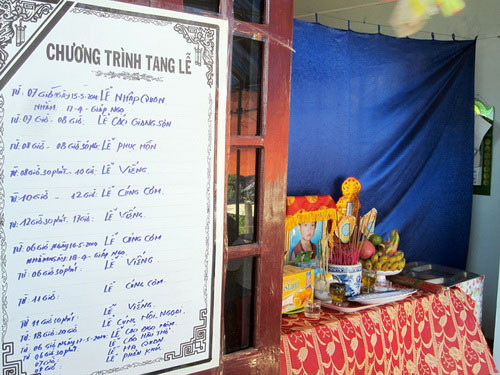 CHƯƠNG TRÌNH TANG LỄ
TỪ: 07 GIỜ NGÀY 15-5-2014 LỄ NHẬP QUAN
NHẰM: 17-4-GIÁP NGỌ
TỪ 07 GIỜ - 08 GIỜ LỄ CÁO GIANG SƠN
TỪ 08 GIỜ - 08 GIỜ 30 PHÚT LỄ PHỤC HỒN
TỪ 08 GIỜ 30 PHÚT - 10 GIỜ LỄ VIẾNG
TỪ 10 GIỜ - 12 GIỜ LỄ CÚNG CƠM
TỪ: 12 GIỜ 30 PHÚT. 17 GIỜ: LỄ VIẾNG.
TỪ 06 GIỜ NGÀY 16-5-2014 LỄ CÚNG CƠM
18-4-GIÁP NGỌ
TỪ 06 GIỜ 30 PHÚT: LỄ VIẾNG
TỪ 11 GIỜ: LỄ CÚNG CƠM.
LỄ VIẾNG.
TỪ 11 GIỜ 30 PHÚT LỄ CÚNG
TỪ 18 GIỜ 30 GIỜ LỄ CÁO ĐẠO
TỪ 06 GIỜ NGÀY 17-5-2014 LỄ CẦU
TỪ 06 GIỜ 30 PHÚT: LỄ HẠ
07 GIỜ LỄ PHÂN